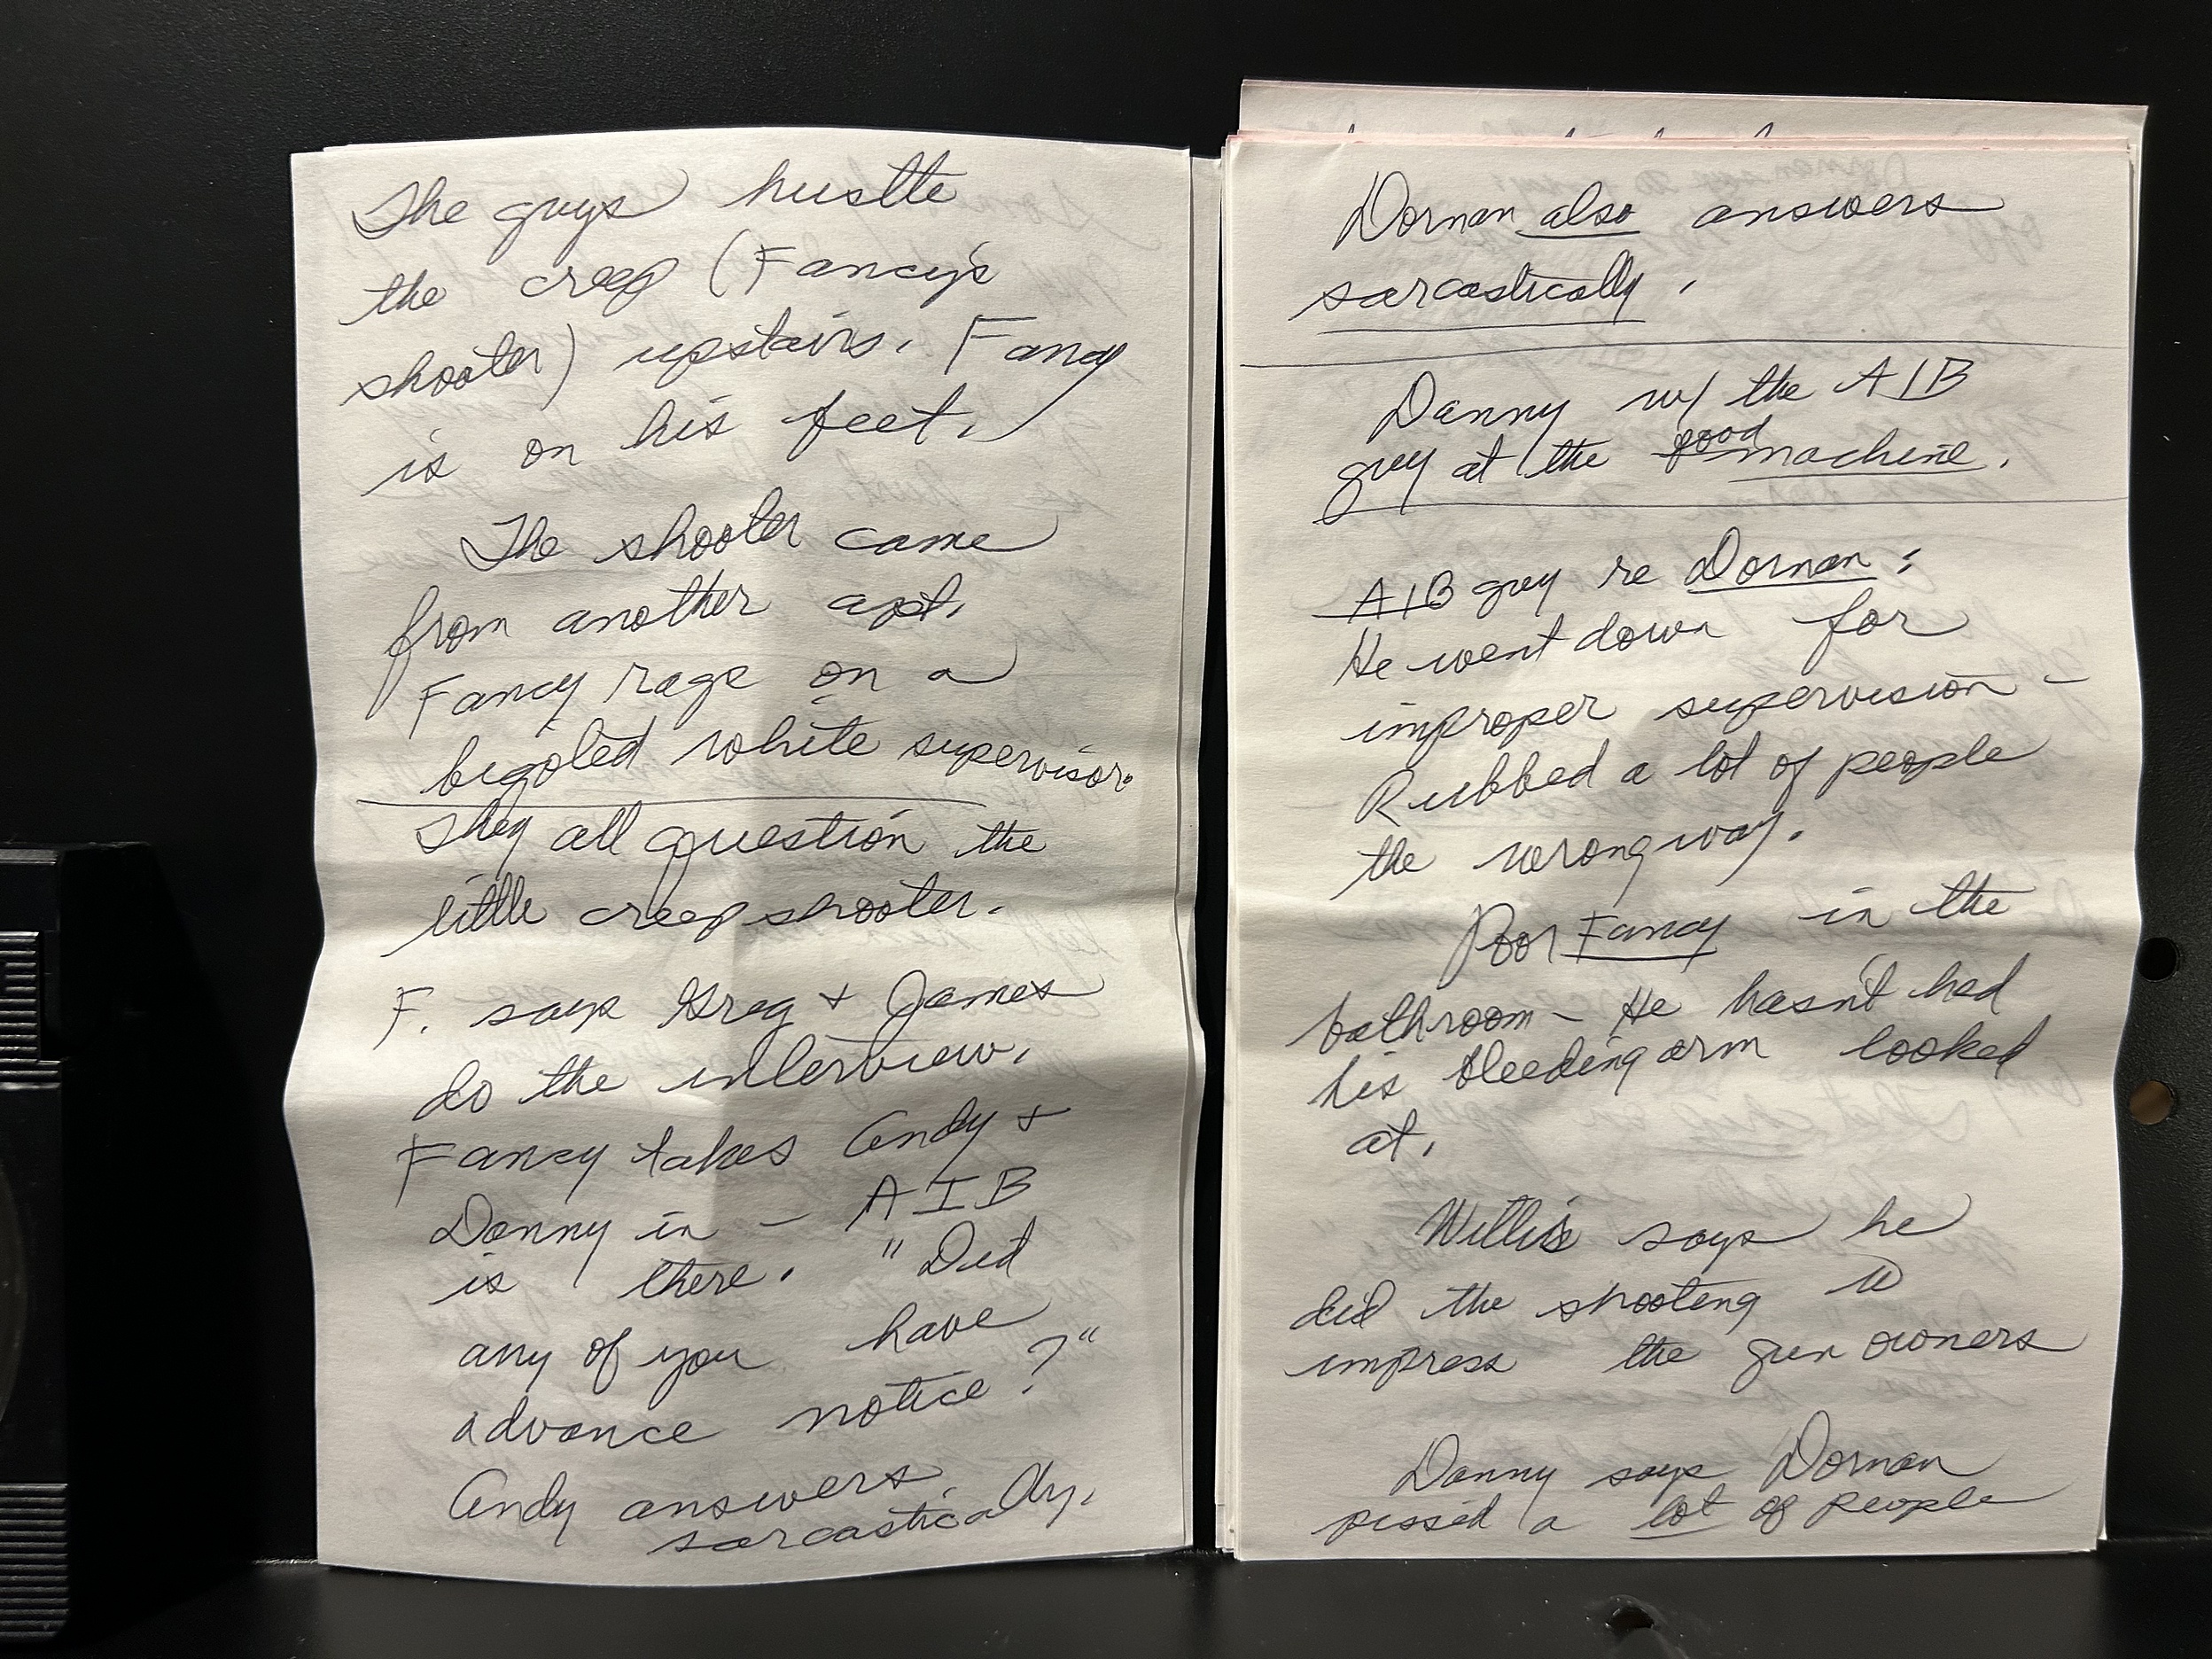 The guys hustle
the creep (Fancy's
shooter) upstairs. Fancy
is on his feet.
The shooter came
from another apt.
Fancy rage on a
bigoted white supervisor.
They all question the
little creep shooter.
F. says Greg + James
do the interview.
Fancy takes Andy +
Danny in - AIB
is there. "Did
any of you have
advance notice?"
Andy answers. Ay,
sarcastically.
Dornan also answers
sarcastically.
Danny w/ the AIB
guy at the food machine.
AIB guy re Dornan:
He went down for
improper supervision -
Rubbed a lot of people
the wrong way.
Poor Fancy in the
bathroom - He hasn't had
his bleeding arm looked
at.
Willis says he
did the shooting to
impress the gun owners
Danny says Dornan
pissed a lot of people